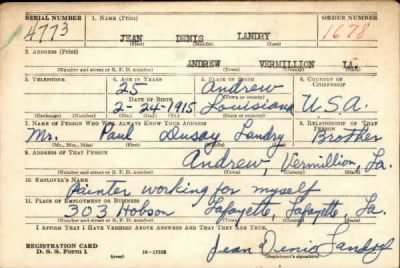 SERIAL NUMBER 1. NAME (Print) ORDER NUMBER
4773 JEAN DENIS LANDRY 1678
(First) (Middle) (Last)
2. ADDRESS (Print)
ANDREW VERMILLION LA.
(Number and street or R. F. D. number) (Town) (County) (State)
3. TELEPHONE 4. AGE IN YEARS 5. PLACE OF BIRTH 6. COUNTRY OF CITIZENSHIP
25 Andrew
DATE OF BIRTH (Town or county)
2-24-1915 Louisiana U.S.A.
(Exchange) (Number) (Mo.) (Day) (Yr.) (State or country)
7. NAME OF PERSON WHO WILL ALWAYS KNOW YOUR ADDRESS 8. RELATIONSHIP OF THAT PERSON
Mr. Paul Landry Brother
(Mr., Mrs., Miss) (First) (Middle) (Last)
9. ADDRESS OF THAT PERSON
Andrew, Vermillion, La.
(Number and street or R. F. D. number) (Town) (County) (State)
10. EMPLOYER'S NAME
Painter working for myself
11. PLACE OF EMPLOYMENT OR BUSINESS
303 Hobson Lafayette, Lafayette La.
(Number and street or R. F. D. number) (Town) (County) (State)
I AFFIRM THAT I HAVE VERIFIED ABOVE ANSWERS AND THAT THEY ARE TRUE.
REGISTRATION CARD
D. S. S. Form 1 (over) Jean Denis Landry
(Registrant's signature)